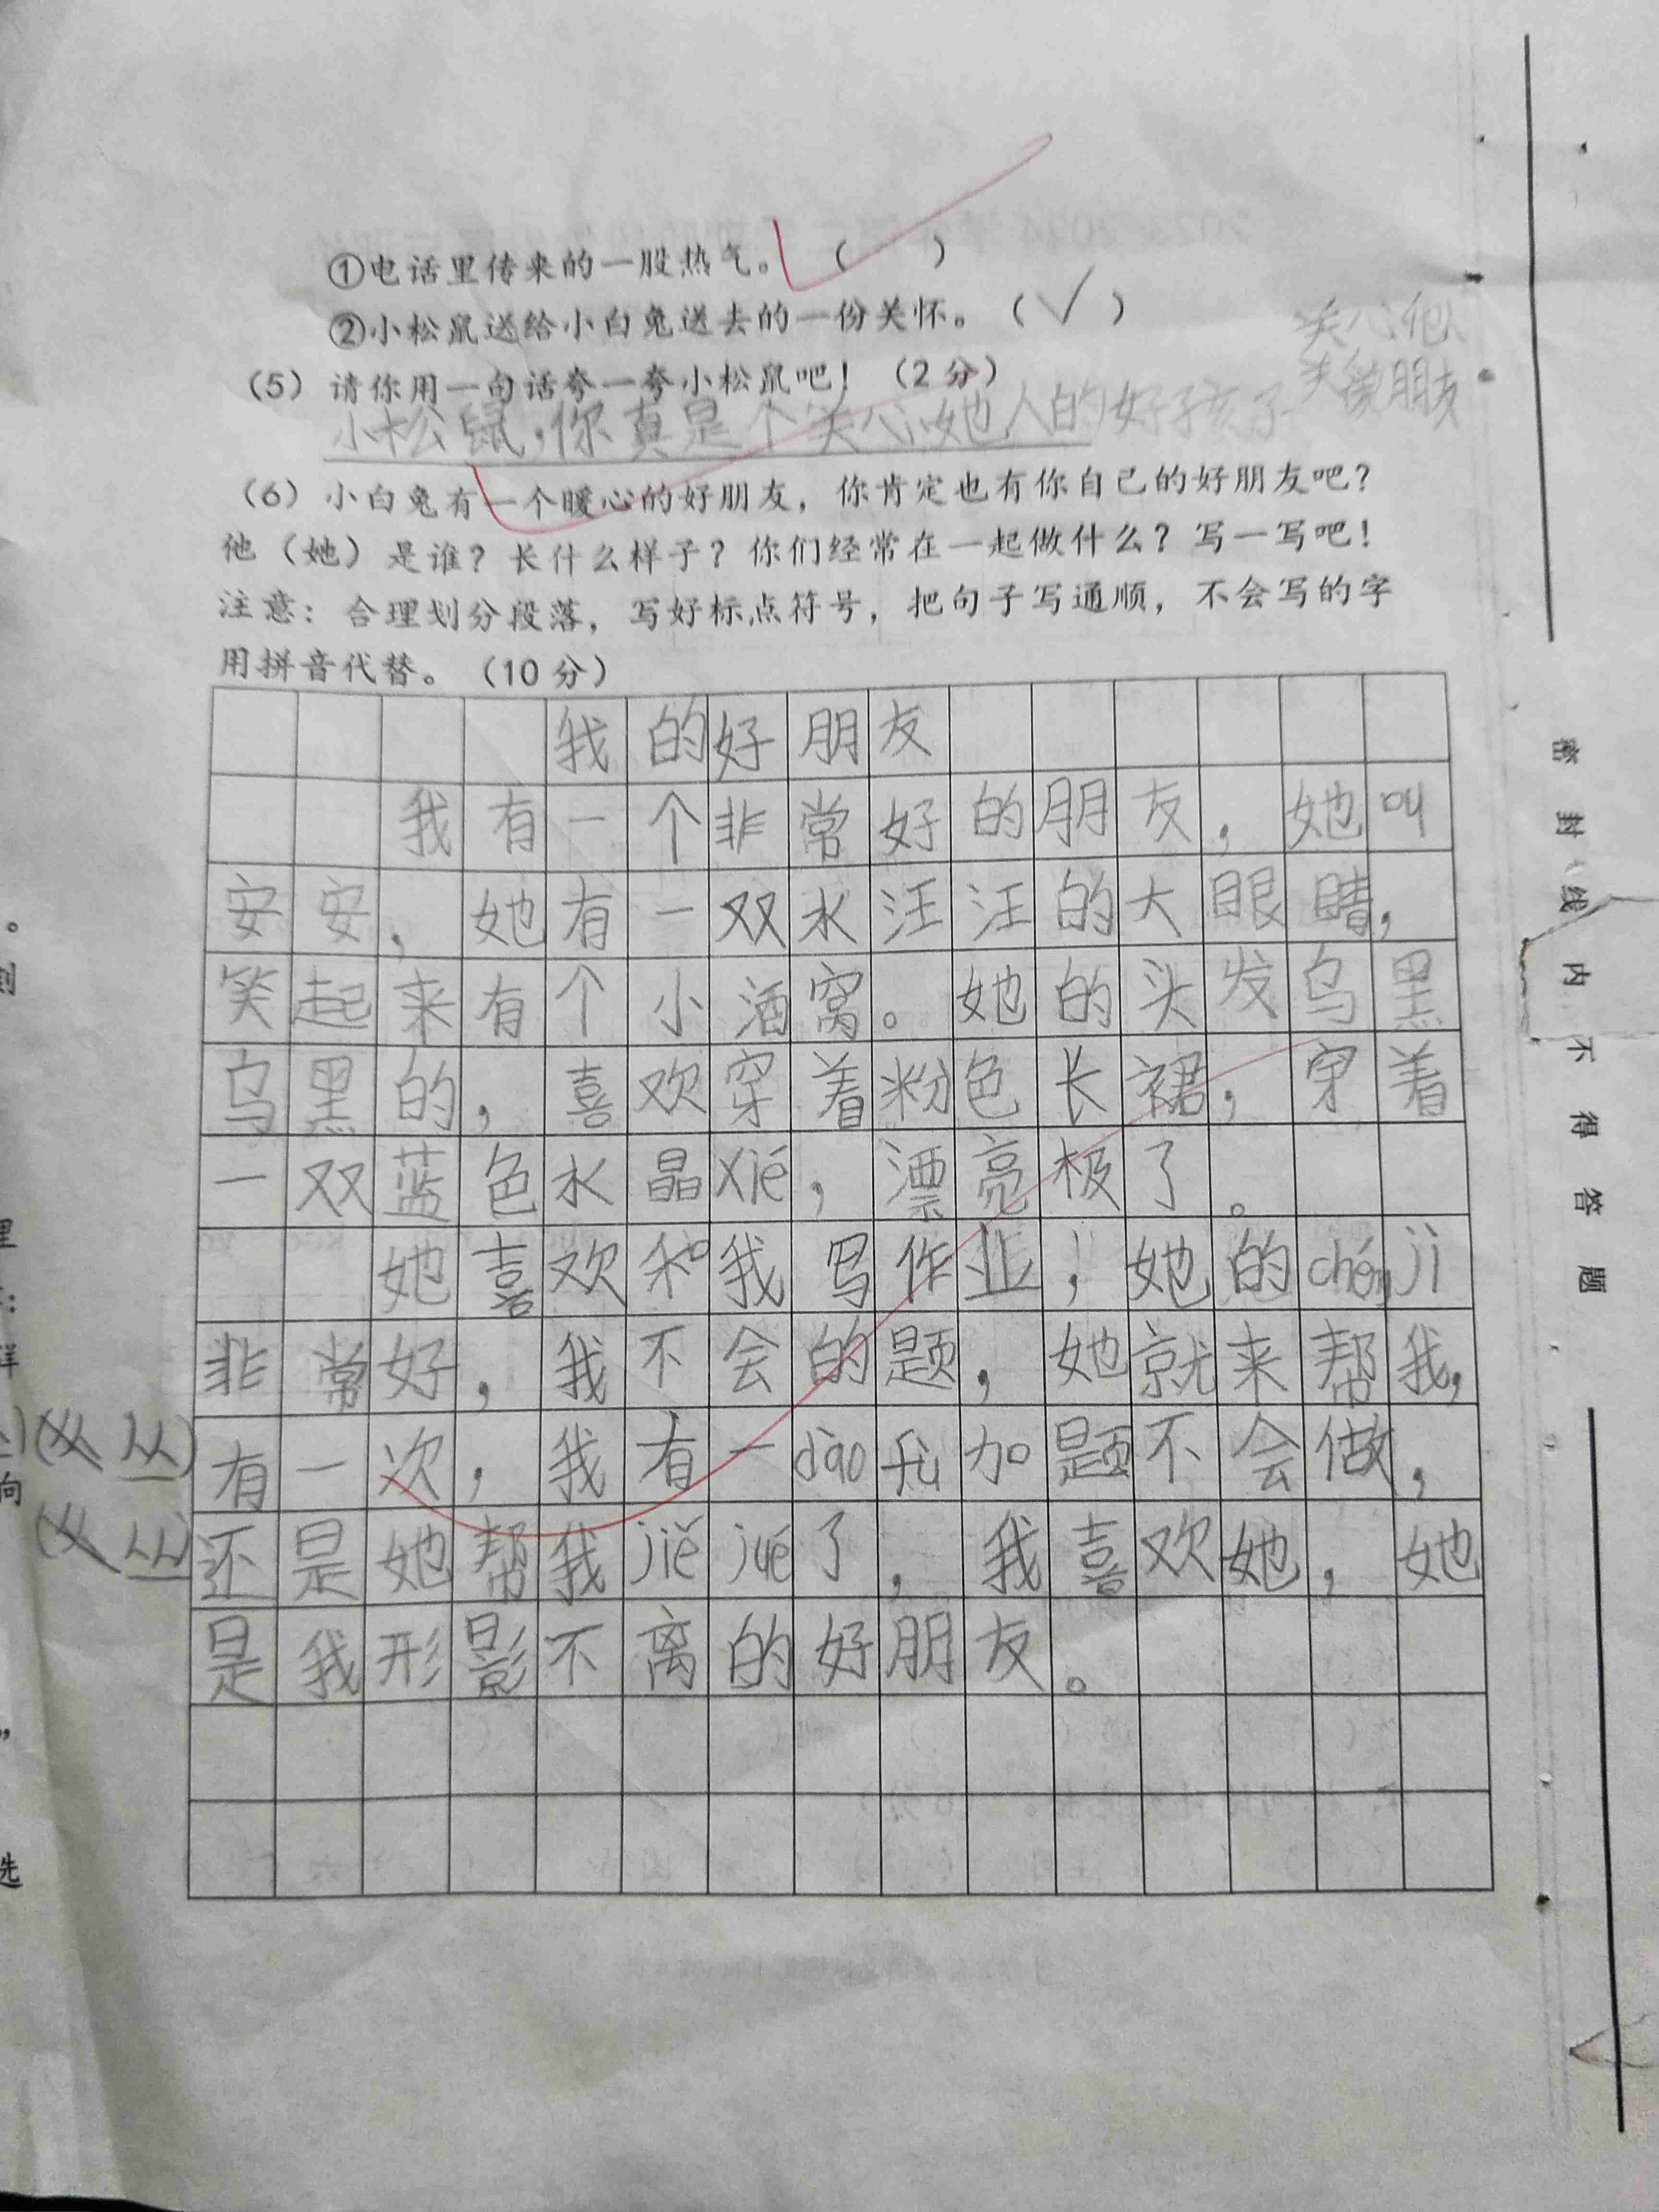 ①电话里传来的一股热气。（　　）
②小松鼠送给小白兔送去的一份关怀。（✓）
关心他人
关爱朋友
（5）请你用一句话夸一夸小松鼠吧！（2分）
小松鼠，你真是个关心她人的好孩子
（6）小白兔有一个暖心的好朋友，你肯定也有你自己的好朋友吧？
他（她）是谁？长什么样子？你们经常在一起做什么？写一写吧！
注意：合理划分段落，写好标点符号，把句子写通顺，不会写的字
用拼音代替。（10分）
我的好朋友
我有一个非常好的朋友，她叫
安安，她有一双水汪汪的大眼睛，
笑起来有个小酒窝。她的头发乌黑
乌黑的，喜欢穿着粉色长裙，穿着
一双蓝色水晶xié，漂亮极了。
她喜欢和我写作业，她的chéng jì
非常好，我不会的题，她就来帮我，
有一次，我有一dào 加题不会做，
还是她帮我jiě jué了，我喜欢她，她
是我形影不离的好朋友。
密封线内不得答题
。
里
：
样
向
，
选